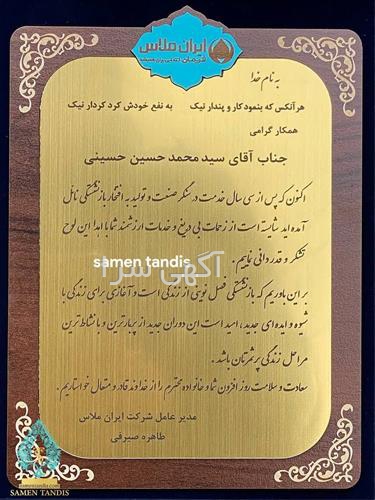 ایران ملاس
به نام خدا
هر آنکس که بنمود کار و پندار نیک به نفع خودش کرد کردار نیک
همکار گرامی
جناب آقای سید محمد حسین حسینی
اکنون که پس از سی سال خدمت در سنگر صنعت و تولید به افتخار بازنشستگی نائل
آمده اید شایسته است از زحمات بی دریغ و خدمات ارزشمند شما با اهدا این لوح
تشکر و قدردانی نماییم .
samen tandis
آگهی سرا
بر این باوریم که بازنشستگی فصل نوینی از زندگی است و آغازی برای زندگی با
شیوه و ایده ای جدید ، امید است این دوران جدید از پربارترین و با نشاط ترین
مراحل زندگی پر ثمرتان باشد .
سعادت و سلامت روز افزون شما و خانواده محترم را از خداوند قادر و متعال خواستاریم .
مدیر عامل شرکت ایران ملاس
طاهره صیرفی
samentandis.com
SAMEN TANDIS